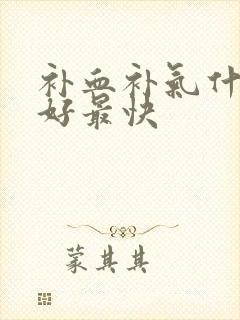 补血补氣什
好最快
蒙其其